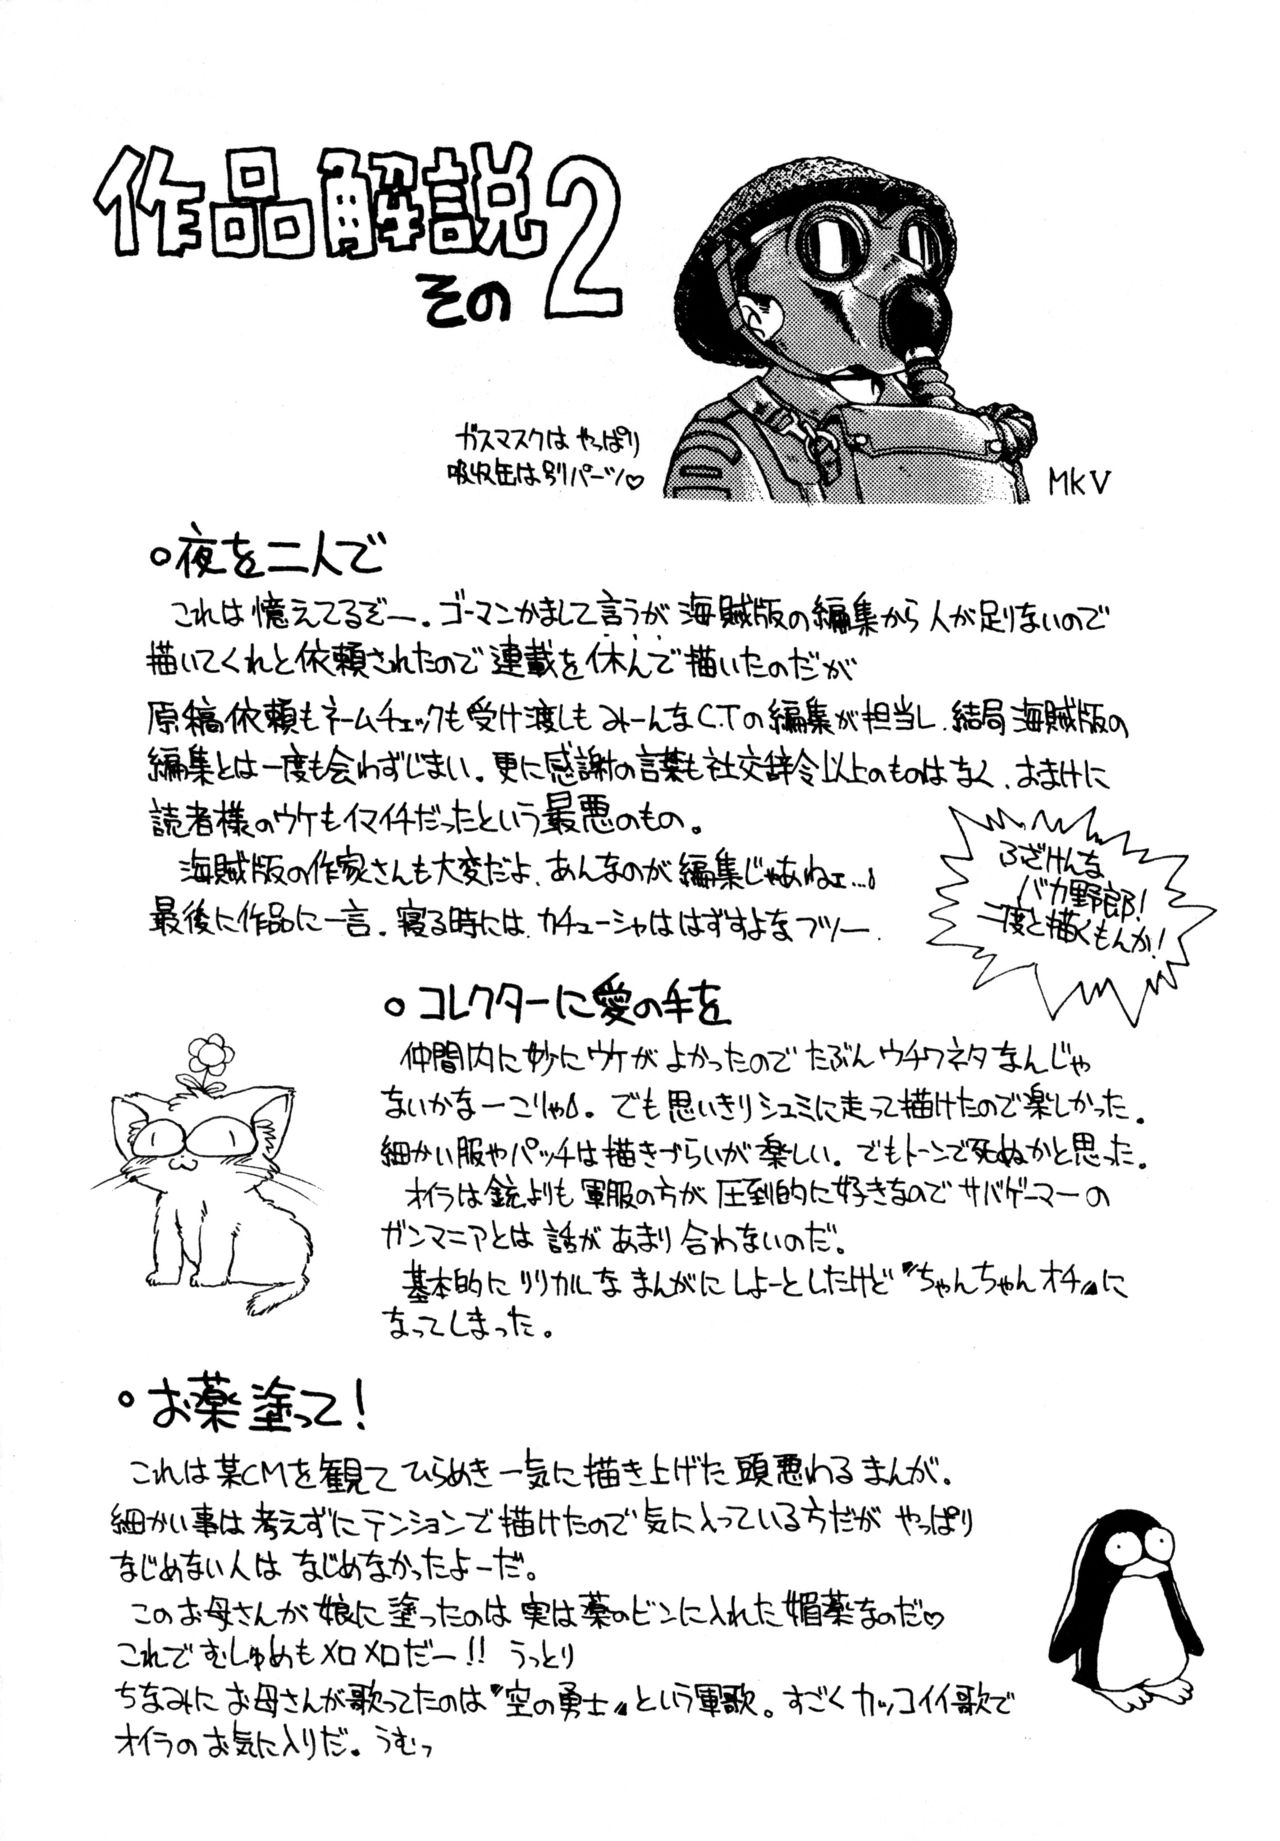 作品解説
その2
ガスマスクは やっぱり
吸収缶は別パーツ♡
MkV
○夜を二人で
これは憶えてるぞー。ゴーマンかまして言うが海賊版の編集から人が足りないので
描いてくれと依頼されたので連載を休んで描いたのだが
原稿依頼もネームチェックも受け渡しもみーんなC.Tの編集が担当し、結局海賊版の
編集とは一度も会わずじまい。更に感謝の言葉も社交辞令以上のものはなく、おまけに
読者様のウケもイマイチだったという最悪のもの。
海賊版の作家さんも大変だよ、あんなのが編集じゃあねェ…。
最後に作品に一言。寝る時には、カチューシャははずすよなフツー。
ふざけんな
バカ野郎!
二度と描くもんか!
○コレクターに愛の手を
仲間内に妙にウケがよかったのでたぶんウチワネタなんじゃ
ないかなーこりゃ。でも思いきりシュミに走って描けたので楽しかった。
細かい服やパッチは描きづらいが楽しい。でもトーンで死ぬかと思った。
オイラは銃よりも軍服の方が圧倒的に好きなのでサバゲーマーの
ガンマニアとは話があまり合わないのだ。
基本的にリリカルなまんがにしよーとしたけど〝ちゃんちゃんオチ〟に
なってしまった。
○お薬塗って!
これは某CMを観てひらめき一気に描き上げた頭悪わるまんが。
細かい事は考えずにテンションで描けたので気に入っている方だがやっぱり
なじめない人はなじめなかったよーだ。
このお母さんが娘に塗ったのは実は薬のビンに入れた媚薬なのだ♡
これでむしゅめもメロメロだー!!うっとり
ちなみにお母さんが歌ってたのは〝空の勇士〟という軍歌。すごくカッコイイ歌で
オイラのお気に入りだ。うむっ